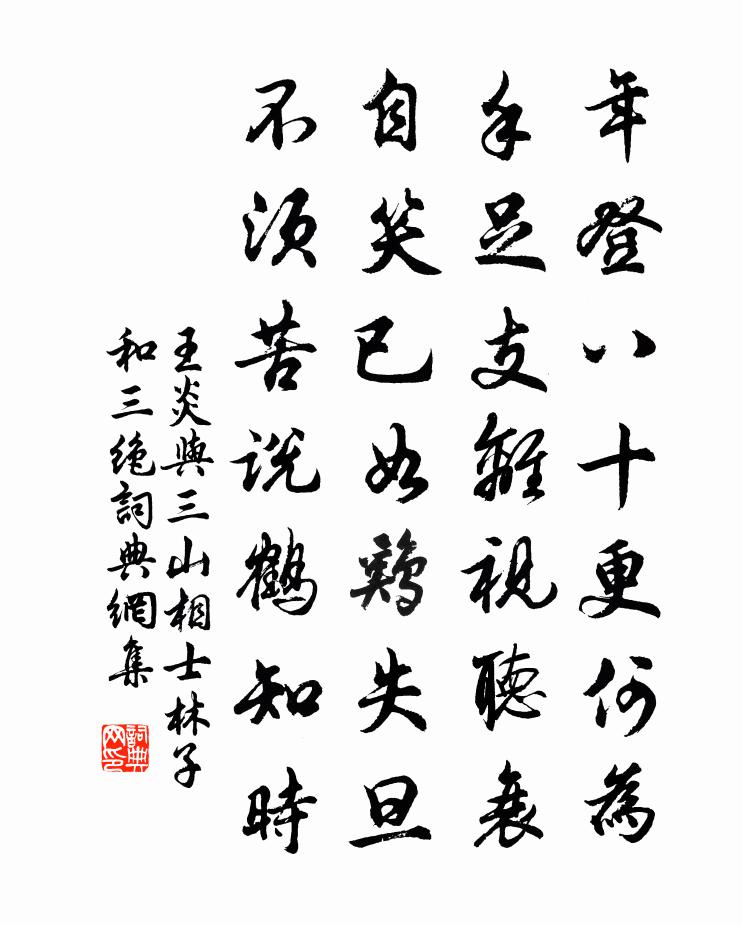 年登八十更何為
手足支離視聽衰
自笑已如鷄失旦
不須苦說鶴知時
王炎與三山相士林子
和三絶詞典網集
詞典網印